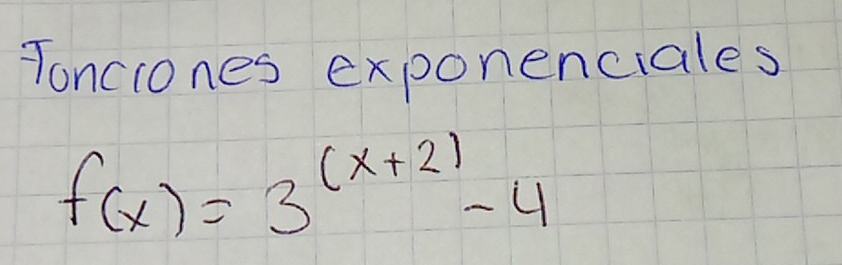 Funciones exponenciales
f(x) = 3^(x+2) - 4